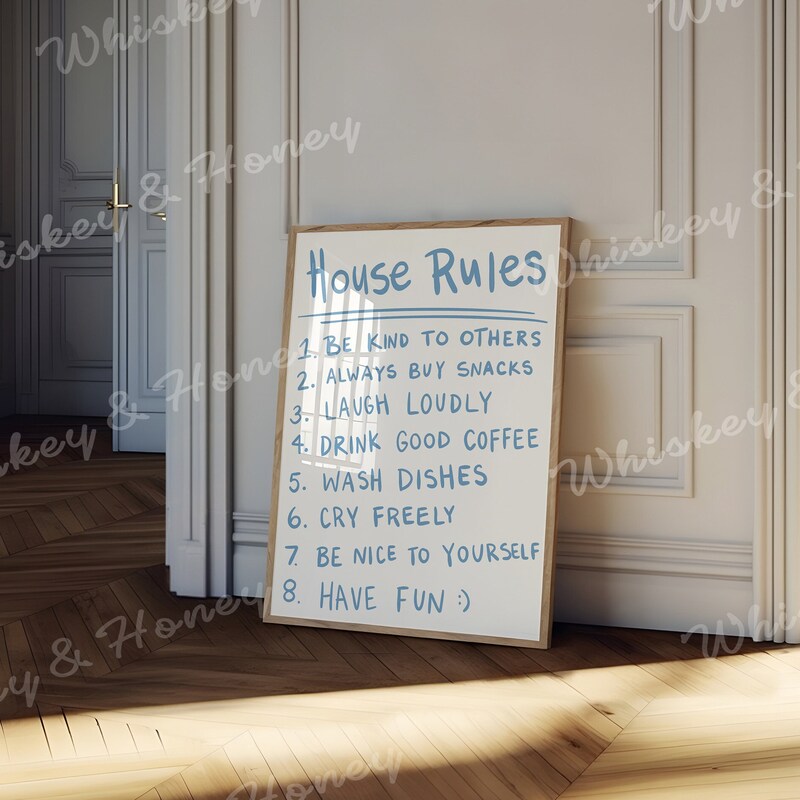 House Rules
1. BE KIND TO OTHERS
2. ALWAYS BUY SNACKS
3. LAUGH LOUDLY
4. DRINK GOOD COFFEE
5. WASH DISHES
6. CRY FREELY
7. BE NICE TO YOURSELF
8. HAVE FUN :)
Whiskey & Honey
Whiskey & Honey
Whiskey & Honey
Whiskey & Honey
Whiskey & Honey